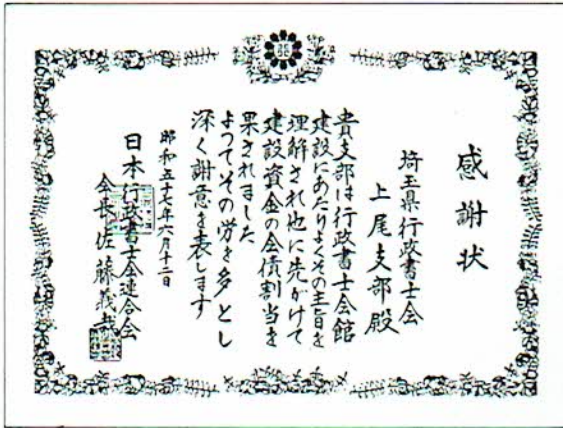 感謝状
埼玉県行政書士会
上尾支部殿
貴支部は行政書士会館
建設にあたりよくその主旨を
理解され他に先がけて
建設資金の会債割当を
果されました
よつてその労を多とし
深く謝意を表します
昭和五十七年六月十二日
日本行政書士会連合会
会長佐藤義哉